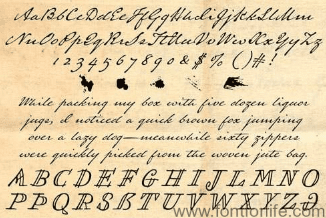 AaBbCcDdEeFfGgHhIiJjKkLlMm
NnOoPpQqRrSsTtUuVvWwXxYyZz
1234567890&$%()#!
While packing my box with five dozen liquor
jugs, I noticed a quick brown fox jumping
over a lazy dog—meanwhile sixty zippers
were quickly picked from the woven jute bag.
ABCDEFGHIJLMNO
PPQRSTUVWXYZ
www.fontforlife.com